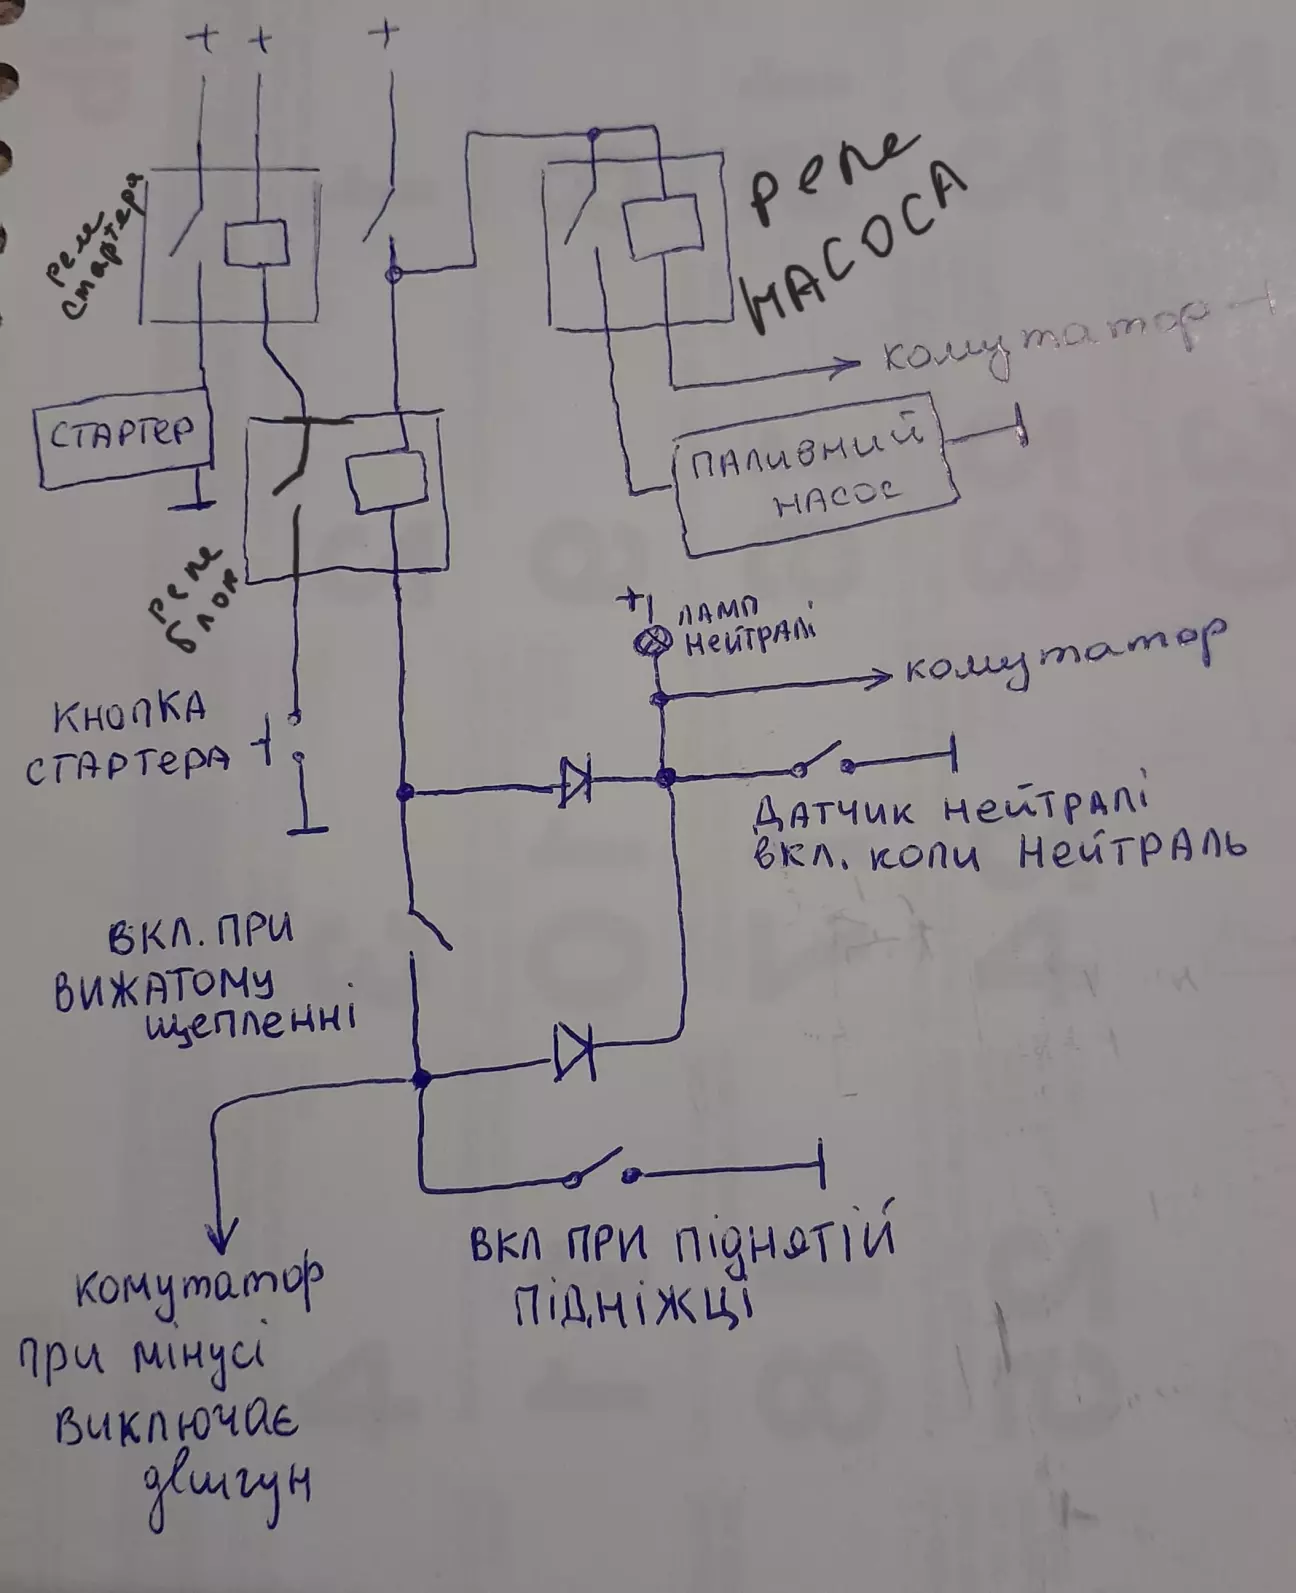 + + +
реле
стартера
реле
НАСОСА
комутатор
СТАРТЕР
ПАЛИВНИЙ
НАСОС
реле
блок
+
ЛАМП
НЕЙТРАЛІ
комутатор
КНОПКА
СТАРТЕРА
ДАТЧИК НЕЙТРАЛІ
ВКЛ. КОЛИ НЕЙТРАЛЬ
ВКЛ. ПРИ
ВИЖАТОМУ
щепленні
ВКЛ ПРИ ПіднятІЙ
ПІДНІЖЦІ
комутатор
при мінусі
виключає
двигун